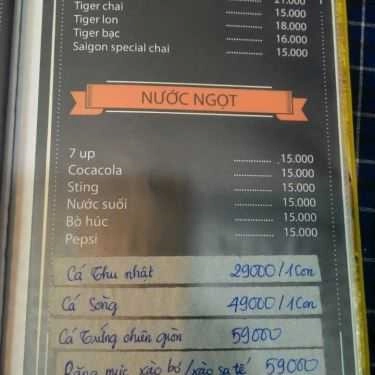 21.000
Tiger chai ........ 15.000
Tiger lon ........ 18.000
Tiger bạc ........ 16.000
Saigon special chai ........ 15.000
NƯỚC NGỌT
7 up ........ 15.000
Cocacola ........ 15.000
Sting ........ 15.000
Nước suối ........ 15.000
Bò húc ........ 15.000
Pepsi ........ 15.000
Cá Thu nhật 29000/1Con
Cá Sòng 49000/1Con
Cá Trứng chiên giòn 59000
Răng mực xào bơ/xào sa tế 59000